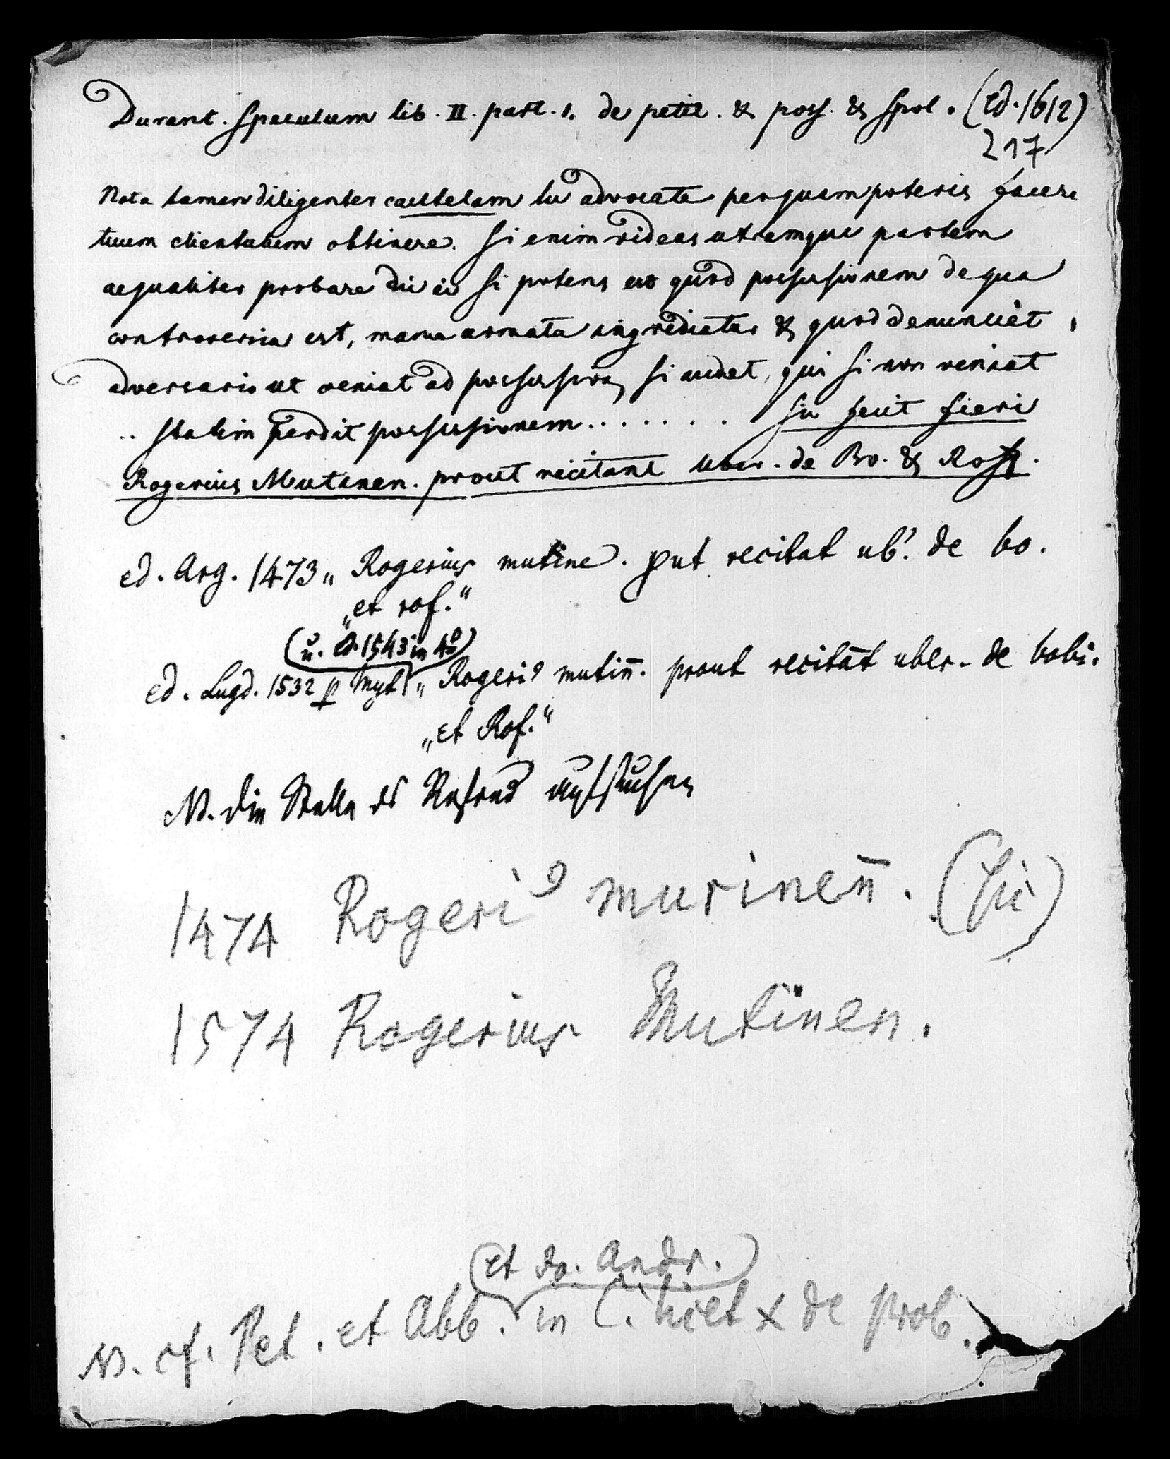 Durant. Speculum lib. II. part. 1. de petit. & poss. & spol. (ed. 1612)
217
Nota tamen diligenter cautelam tu advocate per quam poteris facere
tuum clientulum obtinere. Si enim videas utramque partem
aequaliter probare dic ei si potens est quod possessionem de qua
controversia est, manu armata ingrediatur & quod denunciet
adversario ut veniat ad possession, si audet, qui si non veniat
.. statim perdit possessionem ........ sic fecit fieri
Rogerius Mutinen. prout recitant Uber. de Bo. & Roff.
ed. Arg. 1473 „ Rogerius mutine. put recitat ub'. de bo.
„et rof.“
(u. ed. 1543 in 4o)
ed. Lugd. 1532 p Myt „ Rogeri9 mutin̄. prout recitāt uber. de bobi.
„et Rof.“
NB. die Stelle des Rofred aufsuchen
1474 Rogeri9 murinen̄. (sic)
1574 Rogerius Mutinen.
(et Jo. Andr.)
NB. cf. Pet. et Abb. in C. licet X de prob.